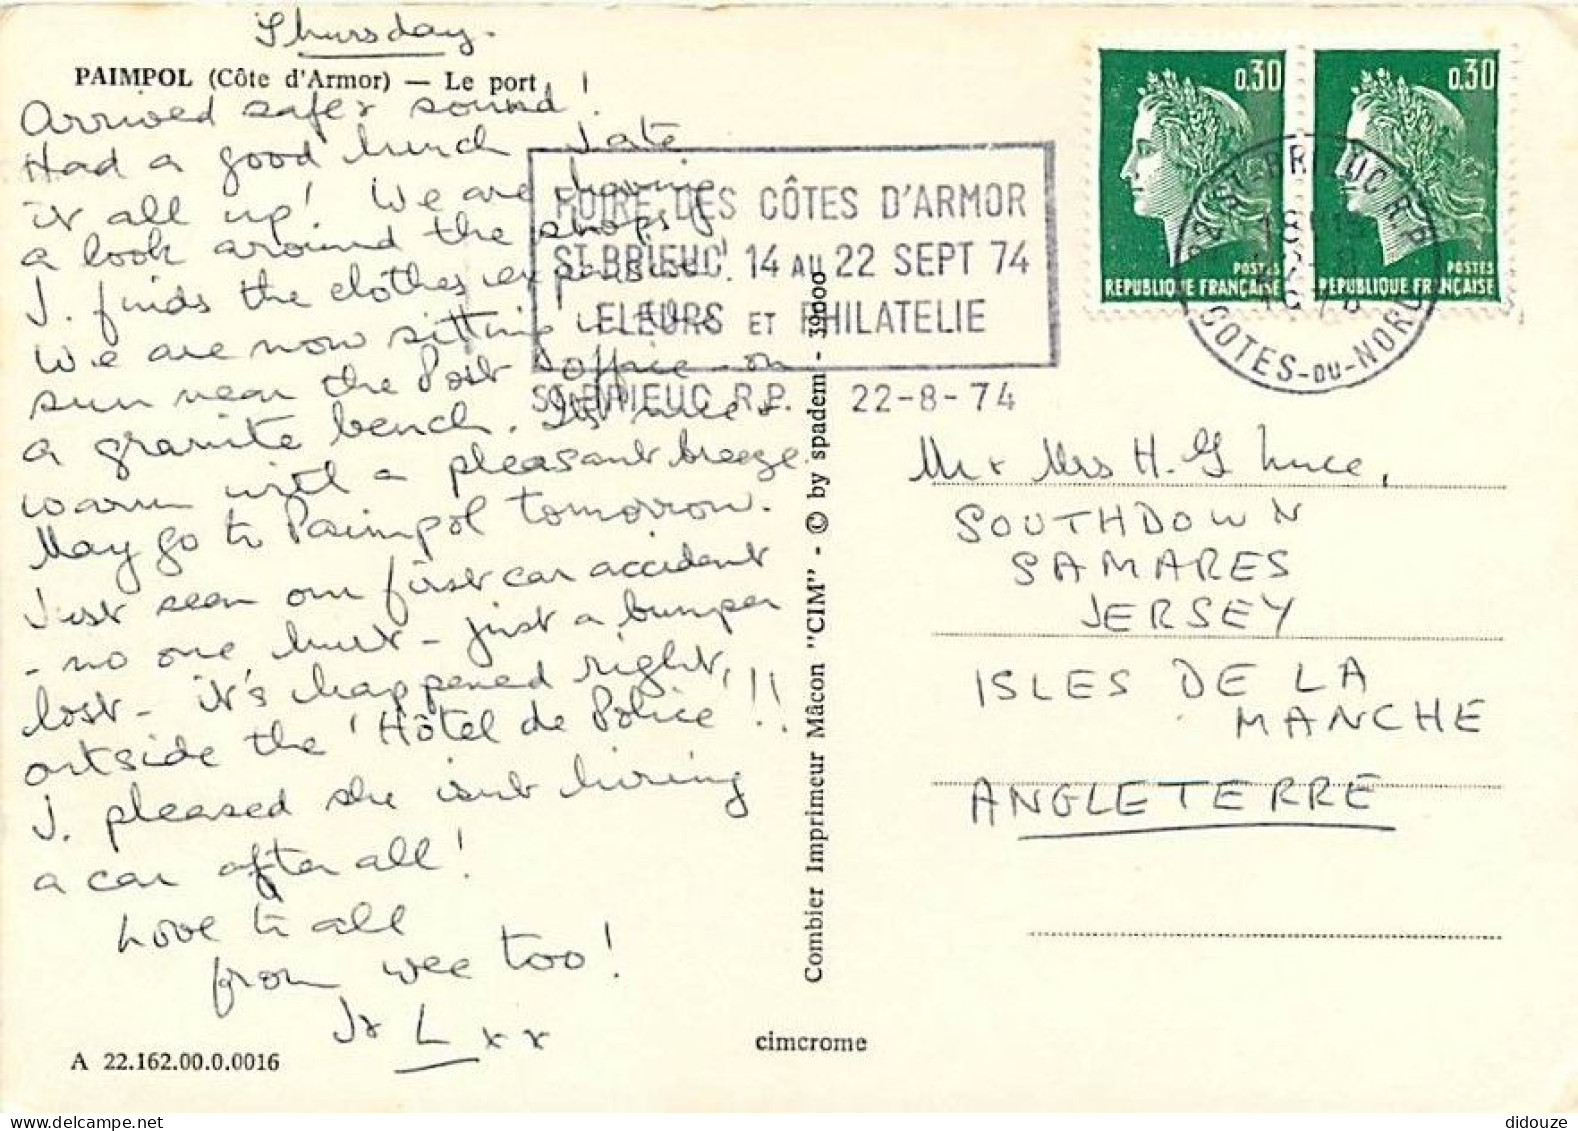 Thursday.
PAIMPOL (Côte d'Armor) — Le port
Arrived safe & sound!
Had a good lunch - J ate
it all up! We are having
a look around the shops,
J. finds the clothes expensive!
We are now sitting in the
sun near the Post Office - on
a granite bench. It's nice &
warm with a pleasant breeze.
May go to Paimpol tomorrow.
Just seen our first car accident
- no one hurt - just a bumper
lost - it's happened right,
outside the 'Hôtel de Police'!!
J. pleased she isn't hiring
a car after all!
Love to all
from wee too!
J & L x x
A 22.162.00.0.0016
FOIRE DES CÔTES D'ARMOR
ST BRIEUC 14 AU 22 SEPT 74
FLEURS ET PHILATELIE
ST-BRIEUC R.P. 22-8-74
Combier Imprimeur Mâcon "CIM" - © by spadem - 39000
cimcrome
0.30
POSTES
REPUBLIQUE FRANÇAISE
0.30
POSTES
REPUBLIQUE FRANÇAISE
22 ST-BRIEUC R.P.
COTES-DU-NORD
Mr & Mrs H. G Luce,
SOUTHDOWN
SAMARES
JERSEY
ISLES DE LA
MANCHE
ANGLETERRE
didouze